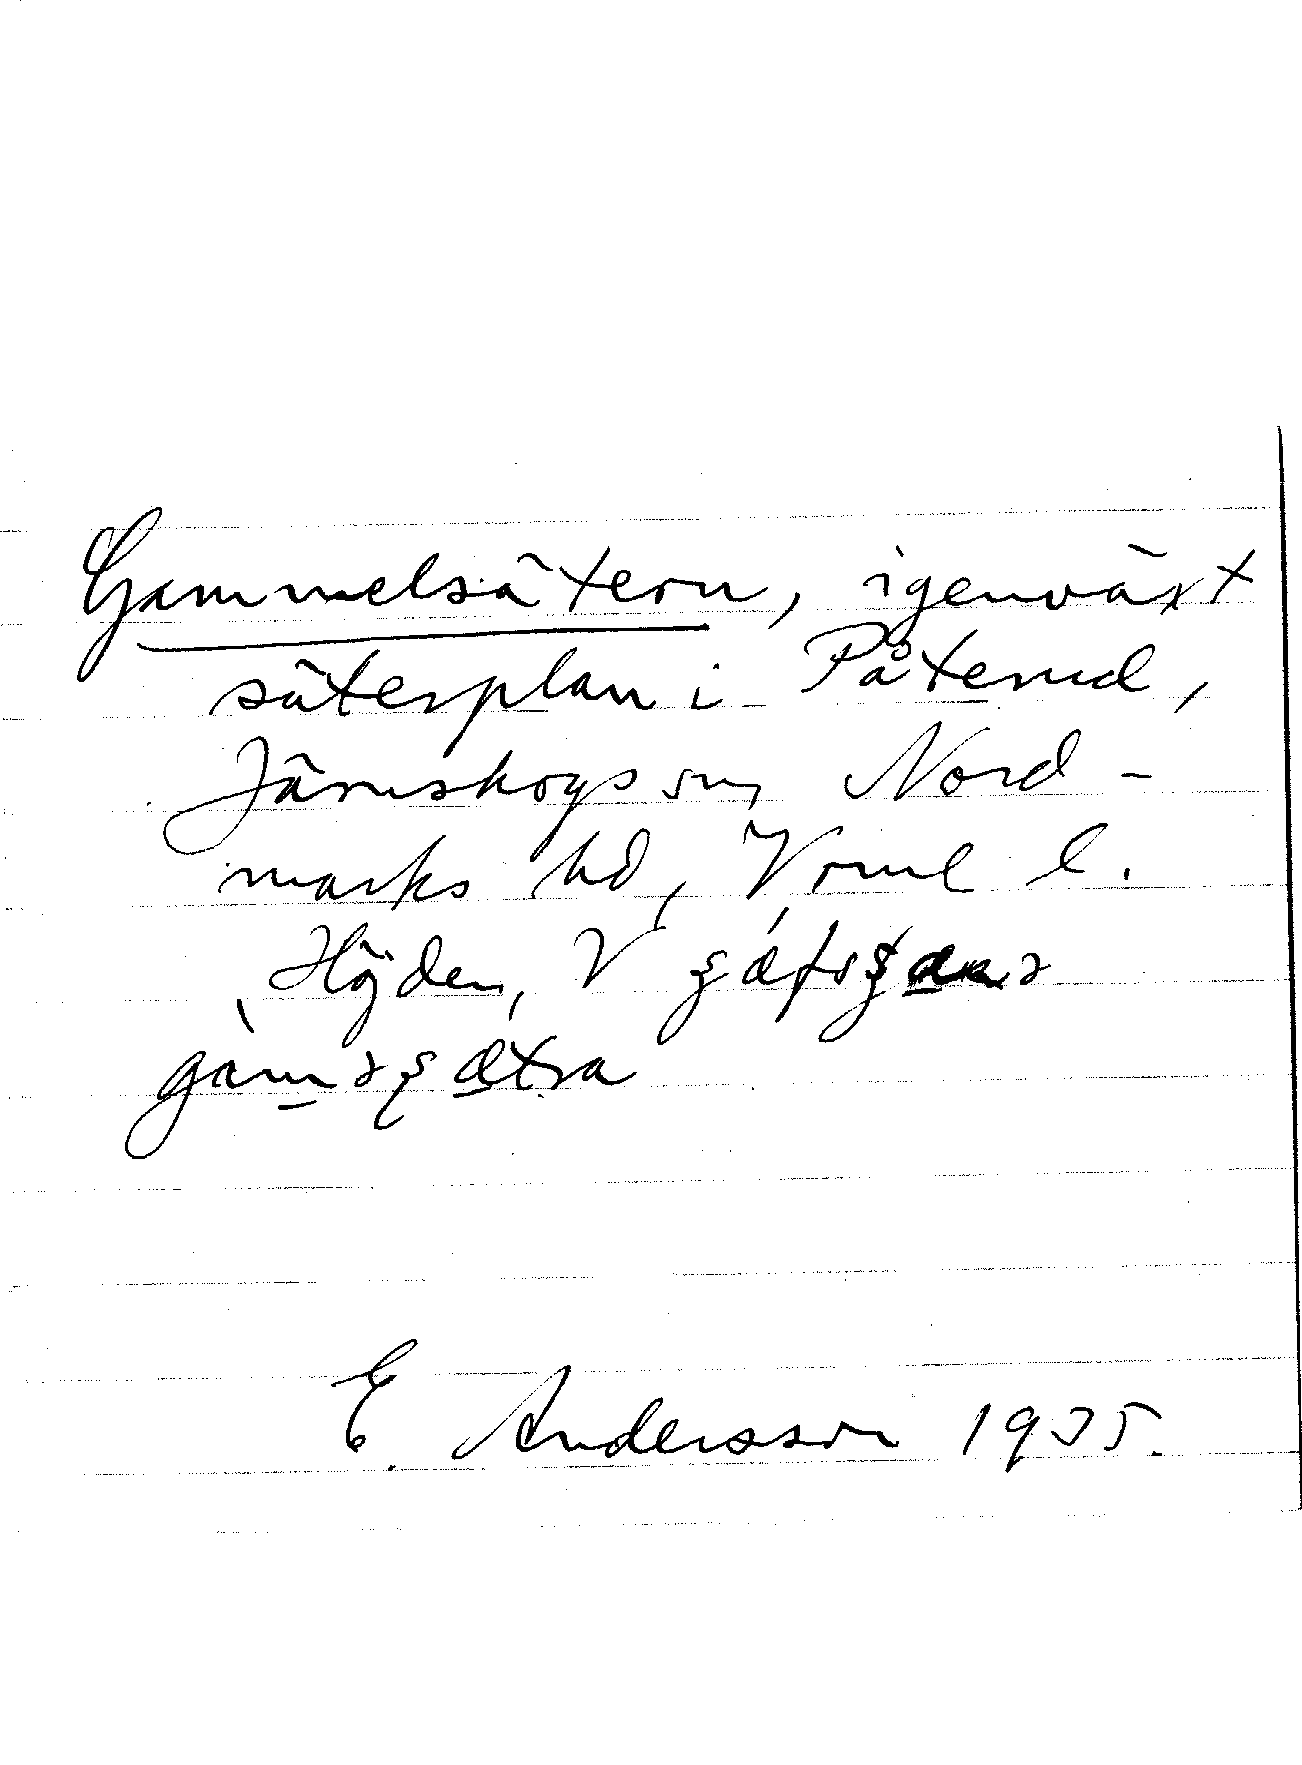 Gammelsätern, igenväxt
säterplan i Påterud,
Järnskogs sn, Nord-
marks hd, Vrml l.
Höjden, V
E. Andersson 1935.